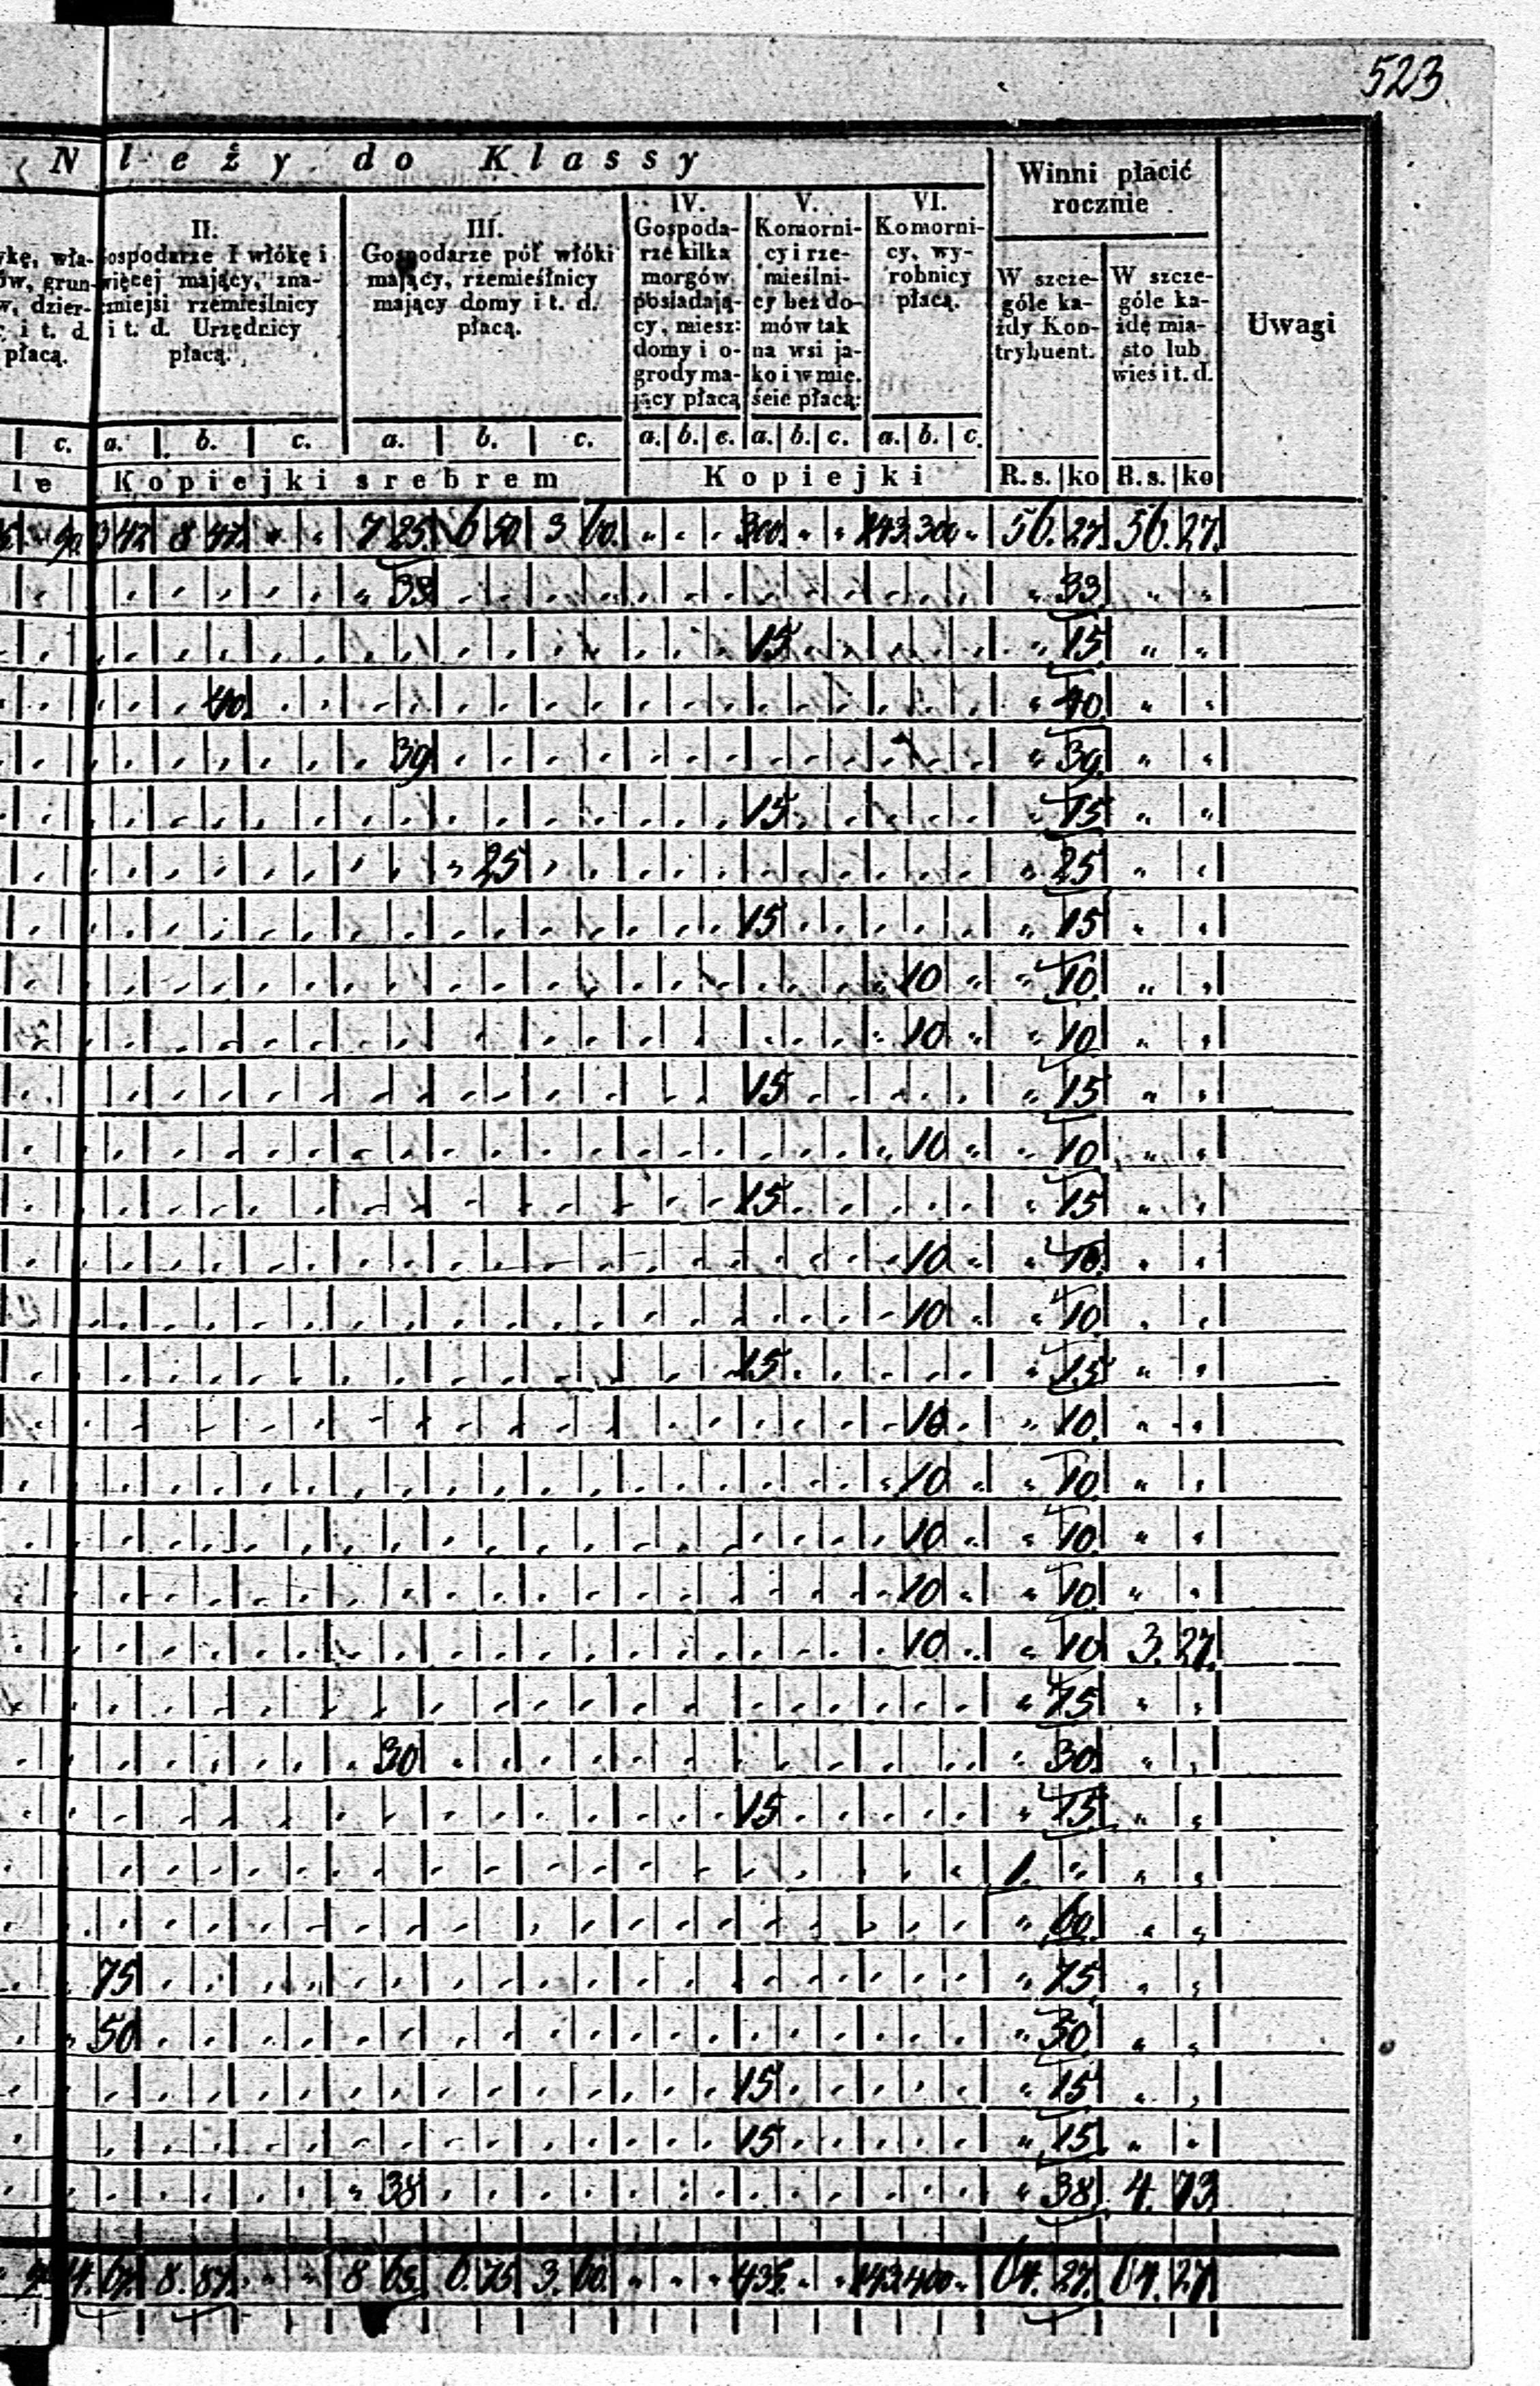 523
N leży do Klassy
Winni płacić
rocznie
Uwagi
wła-
grun-
dzier-
i t. d.
płacą.
II.
Gospodarze I włókę i
więcej mający, zna-
czniejsi rzemieślnicy
i t. d. Urzędnicy
płacą.
III.
Gospodarze pół włóki
mający, rzemieślnicy
mający domy i t. d.
płacą.
IV.
Gospoda-
rze kilka
morgów
posiadają-
cy, miesz:
domy i o-
grody ma-
jący płacą
V.
Komorni-
cy i rze-
mieślni-
cy bez do-
mów tak
na wsi ja-
ko i w mie.
ście płacą:
VI.
Komorni-
cy, wy-
robnicy
płacą.
W szcze-
góle ka-
żdy Kon-
trybuent.
W szcze-
góle ka-
żdę mia-
sto lub
wieś i t. d.
c. a. b. c. a. b. c. a. b. c. a. b. c. a. b. c.
le Kopiejki srebrem Kopiejki R. s. ko R. s. ko
8 47 7 25 6 50 3 60 300 143 300 56. 27 56. 27
33 33
15 15
40 40
39 39
15 15
25 25
15 15
10 10
10 10
15 15
10 10
15 15
10 10
10 10
15 15
10 10
10 10
10 10
10 10
10 10 3. 27
75
30 30
15 15
1.
60
75 75
50 50
15 15
15 15
38 38 4. 73
4. 67 8. 87 8 65 6. 75 3. 60 435 143 400 64. 27 64. 27